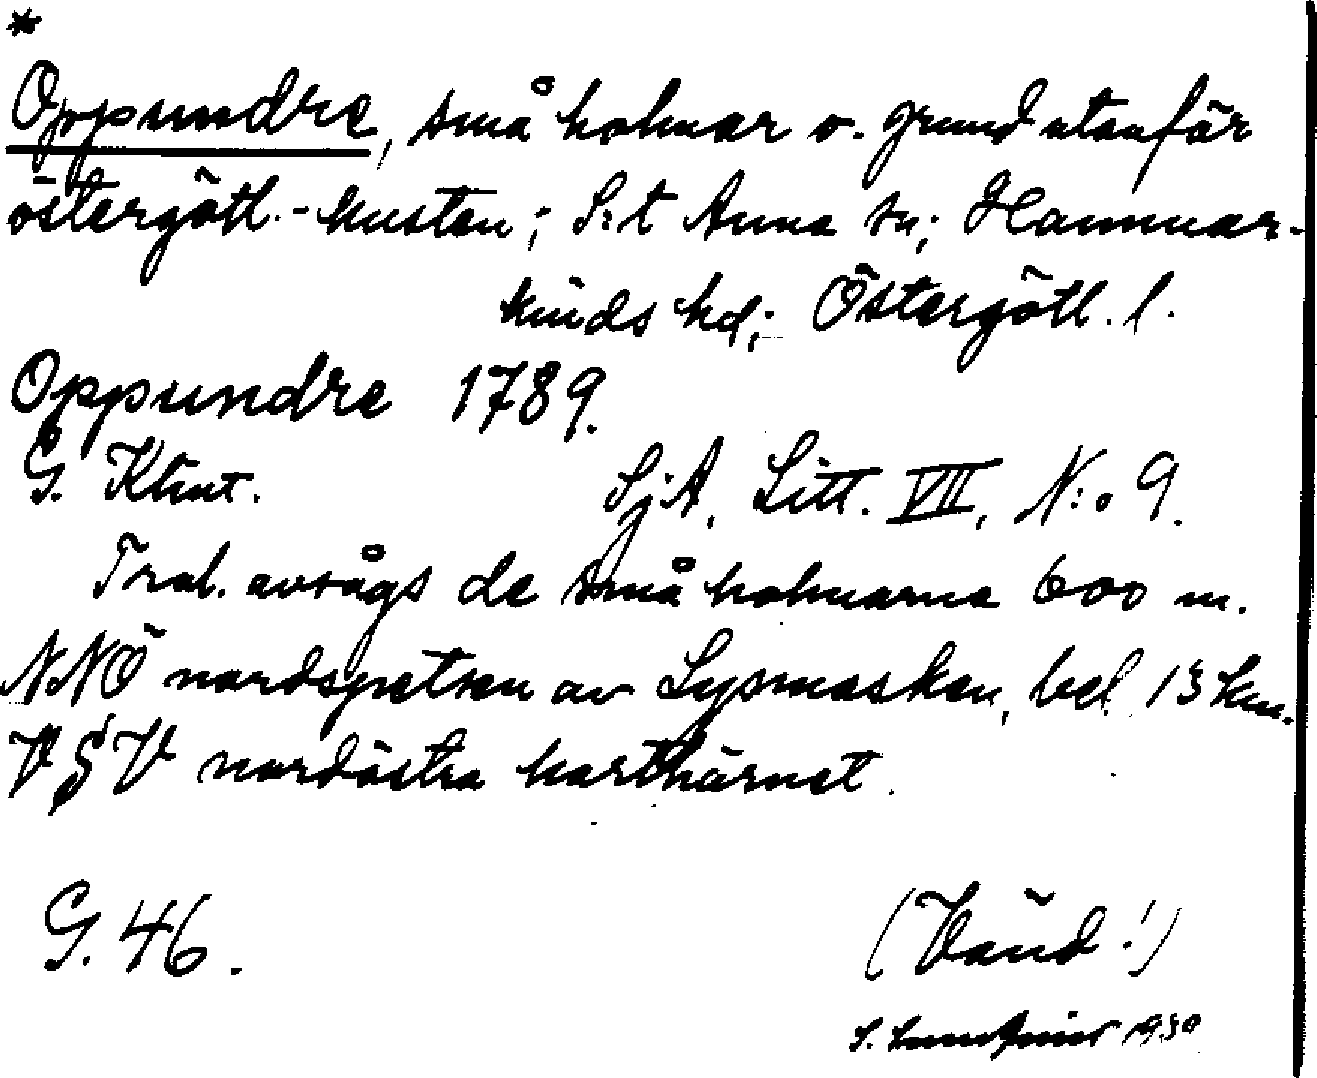 *
Oppundre, små holmar o. grund utanför
östergötl.-kusten; S:t Anna sn; Hammar-
kinds hd; Östergötl. l.
Oppundre 1789.
G. Klint. SjA, Litt. VII, N:o 9.
Trol. avságs de små holmarna 600 m.
NNÖ nordspetsen av Lysmasken, bel. 13 km.
V§V nordöstra karthörnet.
G. 46. (Vänd!)
S. 1930